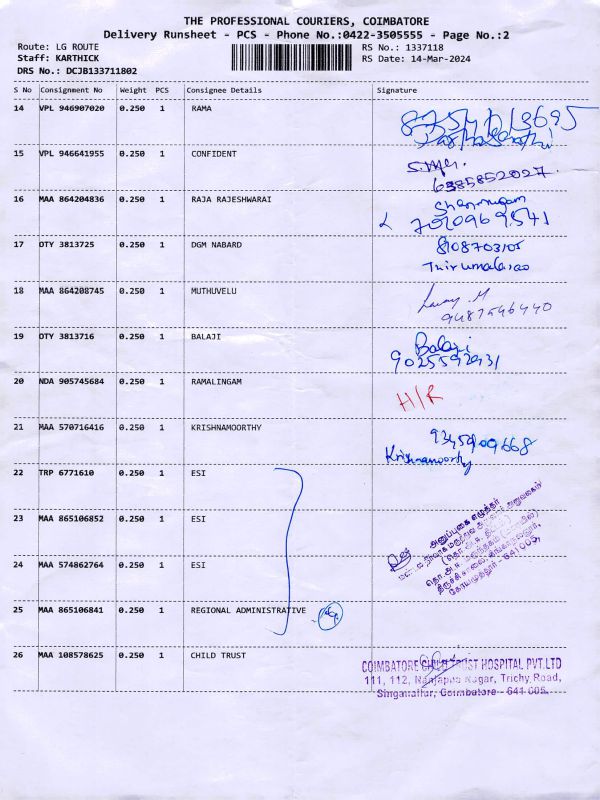 THE PROFESSIONAL COURIERS, COIMBATORE
Delivery Runsheet - PCS - Phone No.:0422-3505555 - Page No.:2
Route: LG ROUTE RS No.: 1337118
Staff: KARTHICK RS Date: 14-Mar-2024
DRS No.: DCJB133711802
S No Consignment No Weight PCS Consignee Details Signature
14 VPL 946907020 0.250 1 RAMA
15 VPL 946641955 0.250 1 CONFIDENT
6385852027
16 MAA 864204836 0.250 1 RAJA RAJESHWARAI Shanmugam
17 DTY 3813725 0.250 1 DGM NABARD
Thirumalarao
18 MAA 864208745 0.250 1 MUTHUVELU
9487546440
19 DTY 3813716 0.250 1 BALAJI Balaji
20 NDA 905745684 0.250 1 RAMALINGAM H/R
21 MAA 570716416 0.250 1 KRISHNAMOORTHY
Krishnamoorthy
22 TRP 6771610 0.250 1 ESI
23 MAA 865106852 0.250 1 ESI
24 MAA 574862764 0.250 1 ESI
25 MAA 865106841 0.250 1 REGIONAL ADMINISTRATIVE
26 MAA 108578625 0.250 1 CHILD TRUST
COIMBATORE CHILD TRUST HOSPITAL PVT.LTD
111, 112, Nanjappa Nagar, Trichy Road,
Singanallur, Coimbatore - 641 005.